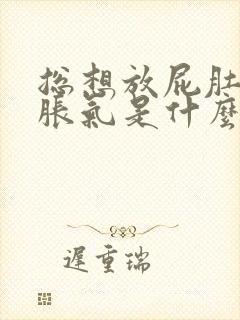 总想放屁肚
脹氣是什麼
遲重瑞